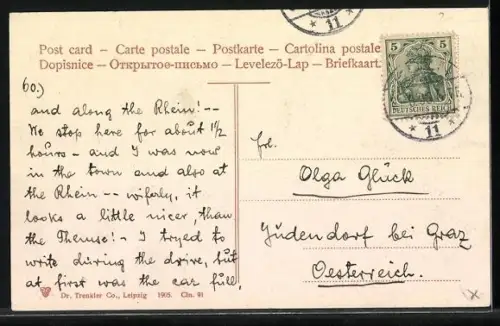 11
Post card – Carte postale – Postkarte – Cartolina postale
Dopisnice – Открытое-письмо – Levelező-Lap – Briefkaart.
5 5
DEUTSCHES REICH
11
60.)
and along the Rhein! --
We stop here for about 1½
hours - and I was now
in the town and also at
the Rhein -- it
looks a little nicer, than
the Themse! - I tryed to
write during the drive, but
at first was the car full,
Frl.
Olga Glück
Judendorf bei Graz
Oesterreich.
Dr. Trenkler Co., Leipzig 1905. Cln. 91